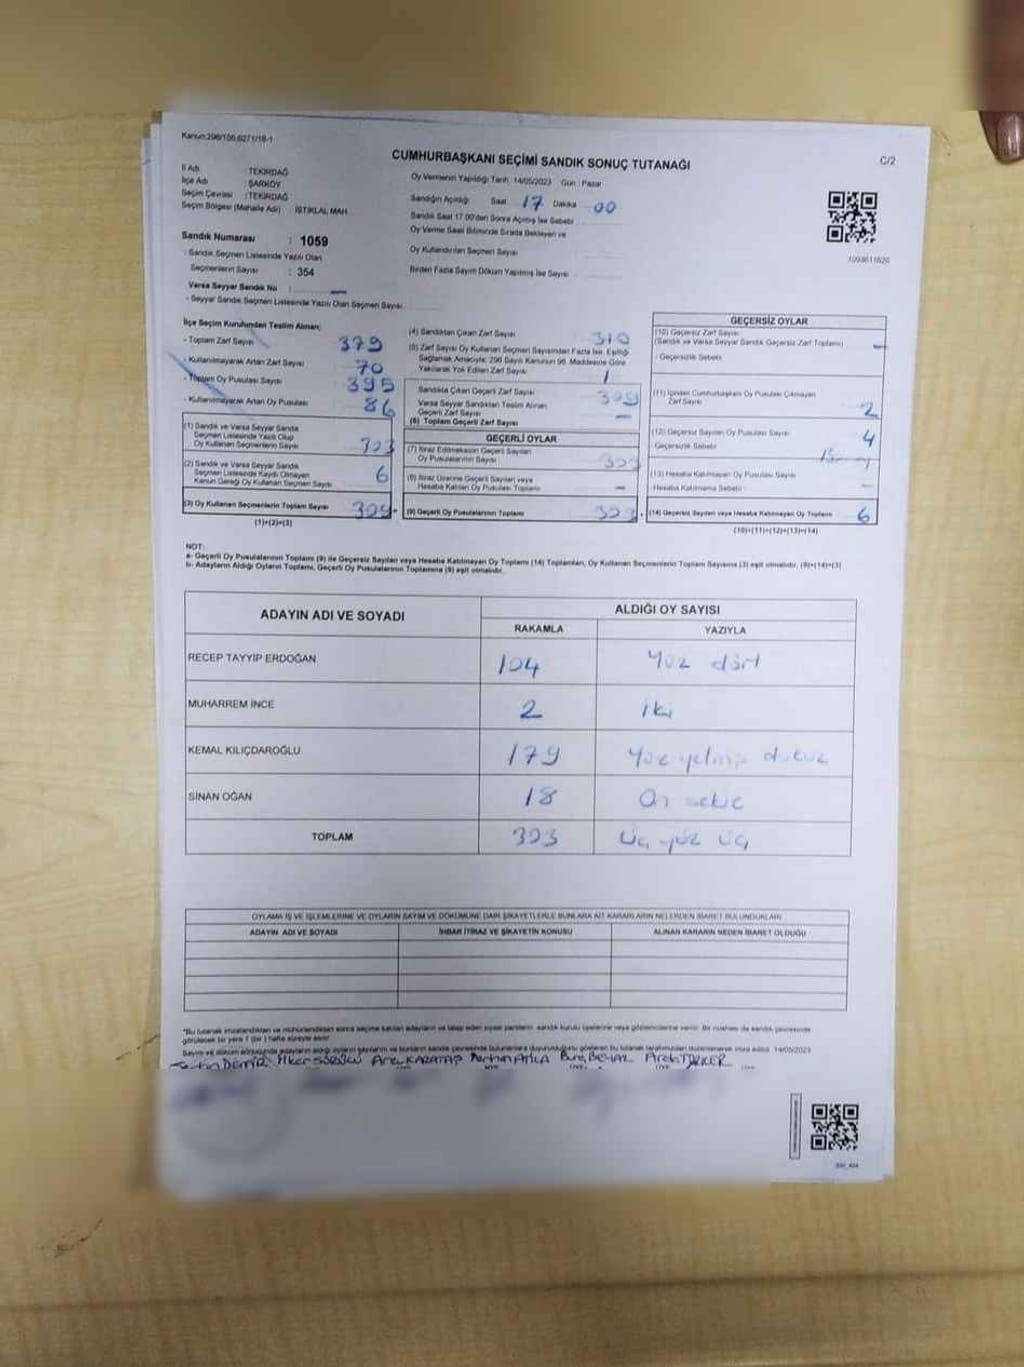 Kanun:298/106,6271/18-1
CUMHURBAŞKANI SEÇİMİ SANDIK SONUÇ TUTANAĞI
C/2
İl Adı : TEKİRDAĞ
İlçe Adı : ŞARKÖY
Seçim Çevresi : TEKİRDAĞ
Seçim Bölgesi (Mahalle Adı) : İSTİKLAL MAH.
Oy Vermenin Yapıldığı Tarih :14/05/2023 Gün : Pazar
Sandığın Açıldığı Saat 17 Dakika 00
Sandık Saat 17.00'den Sonra Açılmış İse Sebebi
Oy Verme Saati Bitiminde Sırada Bekleyen ve
Oy Kullandırılan Seçmen Sayısı
Birden Fazla Sayım Döküm Yapılmış İse Sayısı
1093611620
Sandık Numarası : 1059
- Sandık Seçmen Listesinde Yazılı Olan
Seçmenlerin Sayısı : 354
Varsa Seyyar Sandık No :
- Seyyar Sandık Seçmen Listesinde Yazılı Olan Seçmen Sayısı
İlçe Seçim Kurulundan Teslim Alınan;
- Toplam Zarf Sayısı 379
- Kullanılmayarak Artan Zarf Sayısı 70
- Toplam Oy Pusulası Sayısı 395
- Kullanılmayarak Artan Oy Pusulası 86
(1) Sandık ve Varsa Seyyar Sandık
Seçmen Listesinde Yazılı Olup
Oy Kullanan Seçmenlerin Sayısı 303
(2) Sandık ve Varsa Seyyar Sandık
Seçmen Listesinde Kaydı Olmayan
Kanun Gereği Oy Kullanan Seçmen Sayısı 6
(3) Oy Kullanan Seçmenlerin Toplam Sayısı 309
(1)+(2)=(3)
(4) Sandıktan Çıkan Zarf Sayısı 310
(5) Zarf Sayısı Oy Kullanan Seçmen Sayısından Fazla İse, Eşitliği
Sağlamak Amacıyla; 298 Sayılı Kanunun 98. Maddesine Göre
Yakılarak Yok Edilen Zarf Sayısı 1
Sandıkta Çıkan Geçerli Zarf Sayısı 309
Varsa Seyyar Sandıktan Teslim Alınan
Geçerli Zarf Sayısı –
(6) Toplam Geçerli Zarf Sayısı
GEÇERLİ OYLAR
(7) İtiraz Edilmeksizin Geçerli Sayılan
Oy Pusulalarının Sayısı 303
(8) İtiraz Üzerine Geçerli Sayılan veya
Hesaba Katılan Oy Pusulası Toplamı –
(9) Geçerli Oy Pusulalarının Toplamı 303
GEÇERSİZ OYLAR
(10) Geçersiz Zarf Sayısı
(Sandık ve Varsa Seyyar Sandık Geçersiz Zarf Toplamı) –
- Geçersizlik Sebebi
(11) İçinden Cumhurbaşkanı Oy Pusulası Çıkmayan
Zarf Sayısı 2
(12) Geçersiz Sayılan Oy Pusulası Sayısı 4
Geçersizlik Sebebi
(13) Hesaba Katılmayan Oy Pusulası Sayısı –
Hesaba Katılmama Sebebi
(14) Geçersiz Sayılan veya Hesaba Katılmayan Oy Toplamı 6
(10)+(11)+(12)+(13)=(14)
NOT:
a- Geçerli Oy Pusulalarının Toplamı (9) ile Geçersiz Sayılan veya Hesaba Katılmayan Oy Toplamı (14) Toplamları, Oy Kullanan Seçmenlerin Toplam Sayısına (3) eşit olmalıdır. (9)+(14)=(3)
b- Adayların Aldığı Oyların Toplamı, Geçerli Oy Pusulalarının Toplamına (9) eşit olmalıdır.
ADAYIN ADI VE SOYADI ALDIĞI OY SAYISI
RAKAMLA YAZIYLA
RECEP TAYYİP ERDOĞAN 104 Yüz dört
MUHARREM İNCE 2 iki
KEMAL KILIÇDAROĞLU 179 Yüz yetmiş dokuz
SİNAN OĞAN 18 On sekiz
TOPLAM 303 Üç yüz üç
OYLAMA İŞ VE İŞLEMLERİNE VE OYLARIN SAYIM VE DÖKÜMÜNE DAİR ŞİKAYETLERLE BUNLARA AİT KARARLARIN NELERDEN İBARET BULUNDUKLARI
ADAYIN ADI VE SOYADI İHBAR İTİRAZ VE ŞİKAYETİN KONUSU ALINAN KARARIN NEDEN İBARET OLDUĞU
*Bu tutanak imzalandıktan ve mühürlendikten sonra seçime katılan adayların ve talep eden siyasi partilerin sandık kurulu üyelerine veya gözlemcilerine verilir. Bir nüshası da sandık çevresinde
görülecek bir yere 1 (bir) hafta süreyle asılır.
14/05/2023
DEMİR İlker SÜRÜCÜ KARATAŞ ATİLA BEYAZ